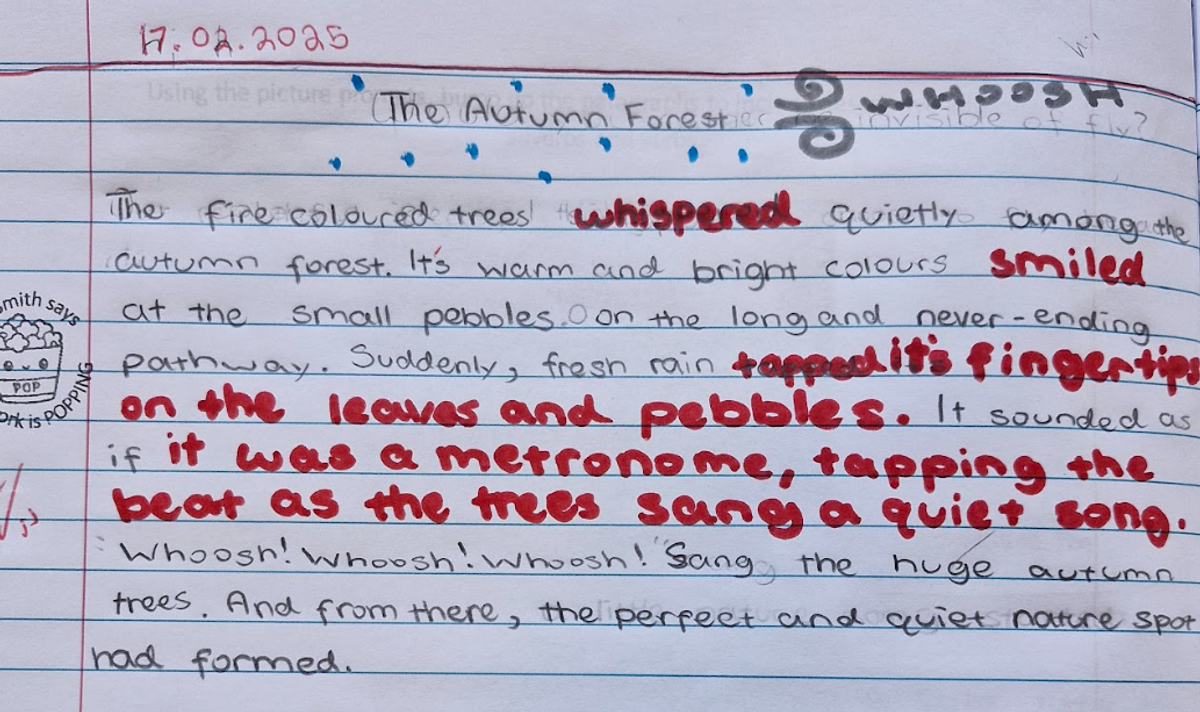 17.02.2025
The Autumn Forest
WHOOSH
The fire coloured trees whispered quietly among the
autumn forest. It's warm and bright colours smiled
at the small pebbles. on the long and never-ending
pathway. Suddenly, fresh rain tapped it's fingertips
on the leaves and pebbles. It sounded as
if it was a metronome, tapping the
beat as the trees sang a quiet song.
Whoosh! Whoosh! Whoosh!" Sang the huge autumn
trees. And from there, the perfect and quiet nature spot
had formed.
mith says
POP
ork is POPPING